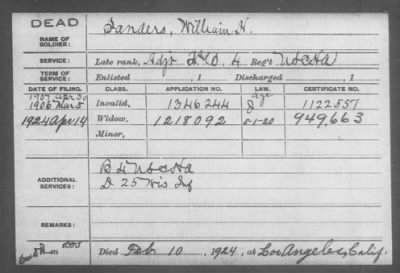 DEAD
NAME OF SOLDIER: Sanders, William H.
SERVICE: Late rank, Adjt F&S. 4 Reg't USCHA
TERM OF SERVICE: Enlisted , 1 Discharged , 1
DATE OF FILING. CLASS. APPLICATION NO. LAW. CERTIFICATE NO.
1907 apr 30 age
1906 Mar 5 Invalid, 1346244 1122557
1924 Apr 14 Widow, 1218092 5-1-20 949,663
Minor,
ADDITIONAL SERVICES: B 4 USCHA
D 25 Wis Inf
REMARKS:
Died Feb 10, 1924, at Los Angeles, Calif.